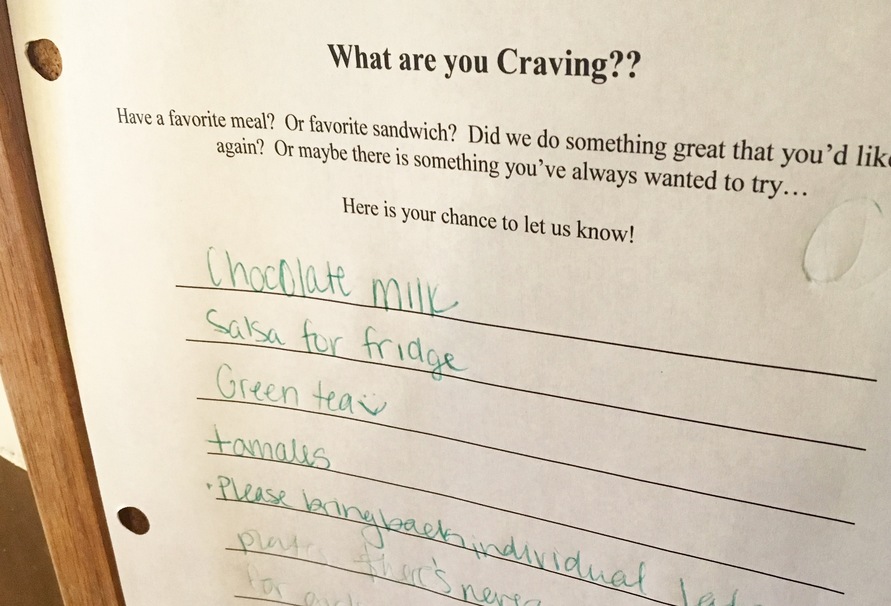 What are you Craving??
Have a favorite meal? Or favorite sandwich? Did we do something great that you'd like
again? Or maybe there is something you've always wanted to try...
Here is your chance to let us know!
Chocolate milk
Salsa for fridge
Green tea
tamales
Please bring back individual
ther's never
for